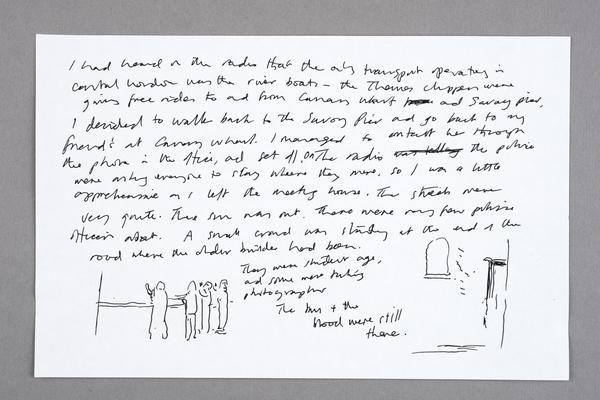 I had heard on the radio that the only transport operating in
central London was the river boats – the Thames clippers were
giving free rides to and from Canary Wharf and Savoy Pier.
I decided to walk back to the Savoy Pier and go back to my
friend's at Canary Wharf. I managed to contact her through
the phone in the office, and set off. On the radio the police
were asking everyone to stay where they were, so I was a little
apprehensive as I left the meeting house. The streets were
very quiet. The sun was out. There were very few police
officers about. A small crowd was standing at the end of the
road where the older bomber had been.
They were student age,
and some were taking
photographs
The bus + the
blood were still
there.